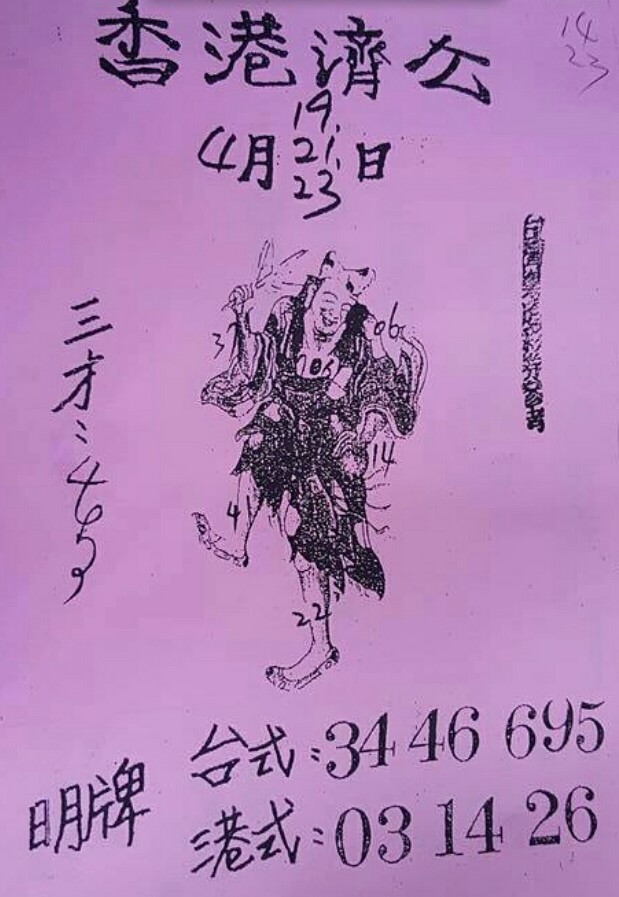 香港濟公
14
23
4月19.21.23日
三才:
3
06
14
4
22
明牌
台式:34 46 695
港式:03 14 26